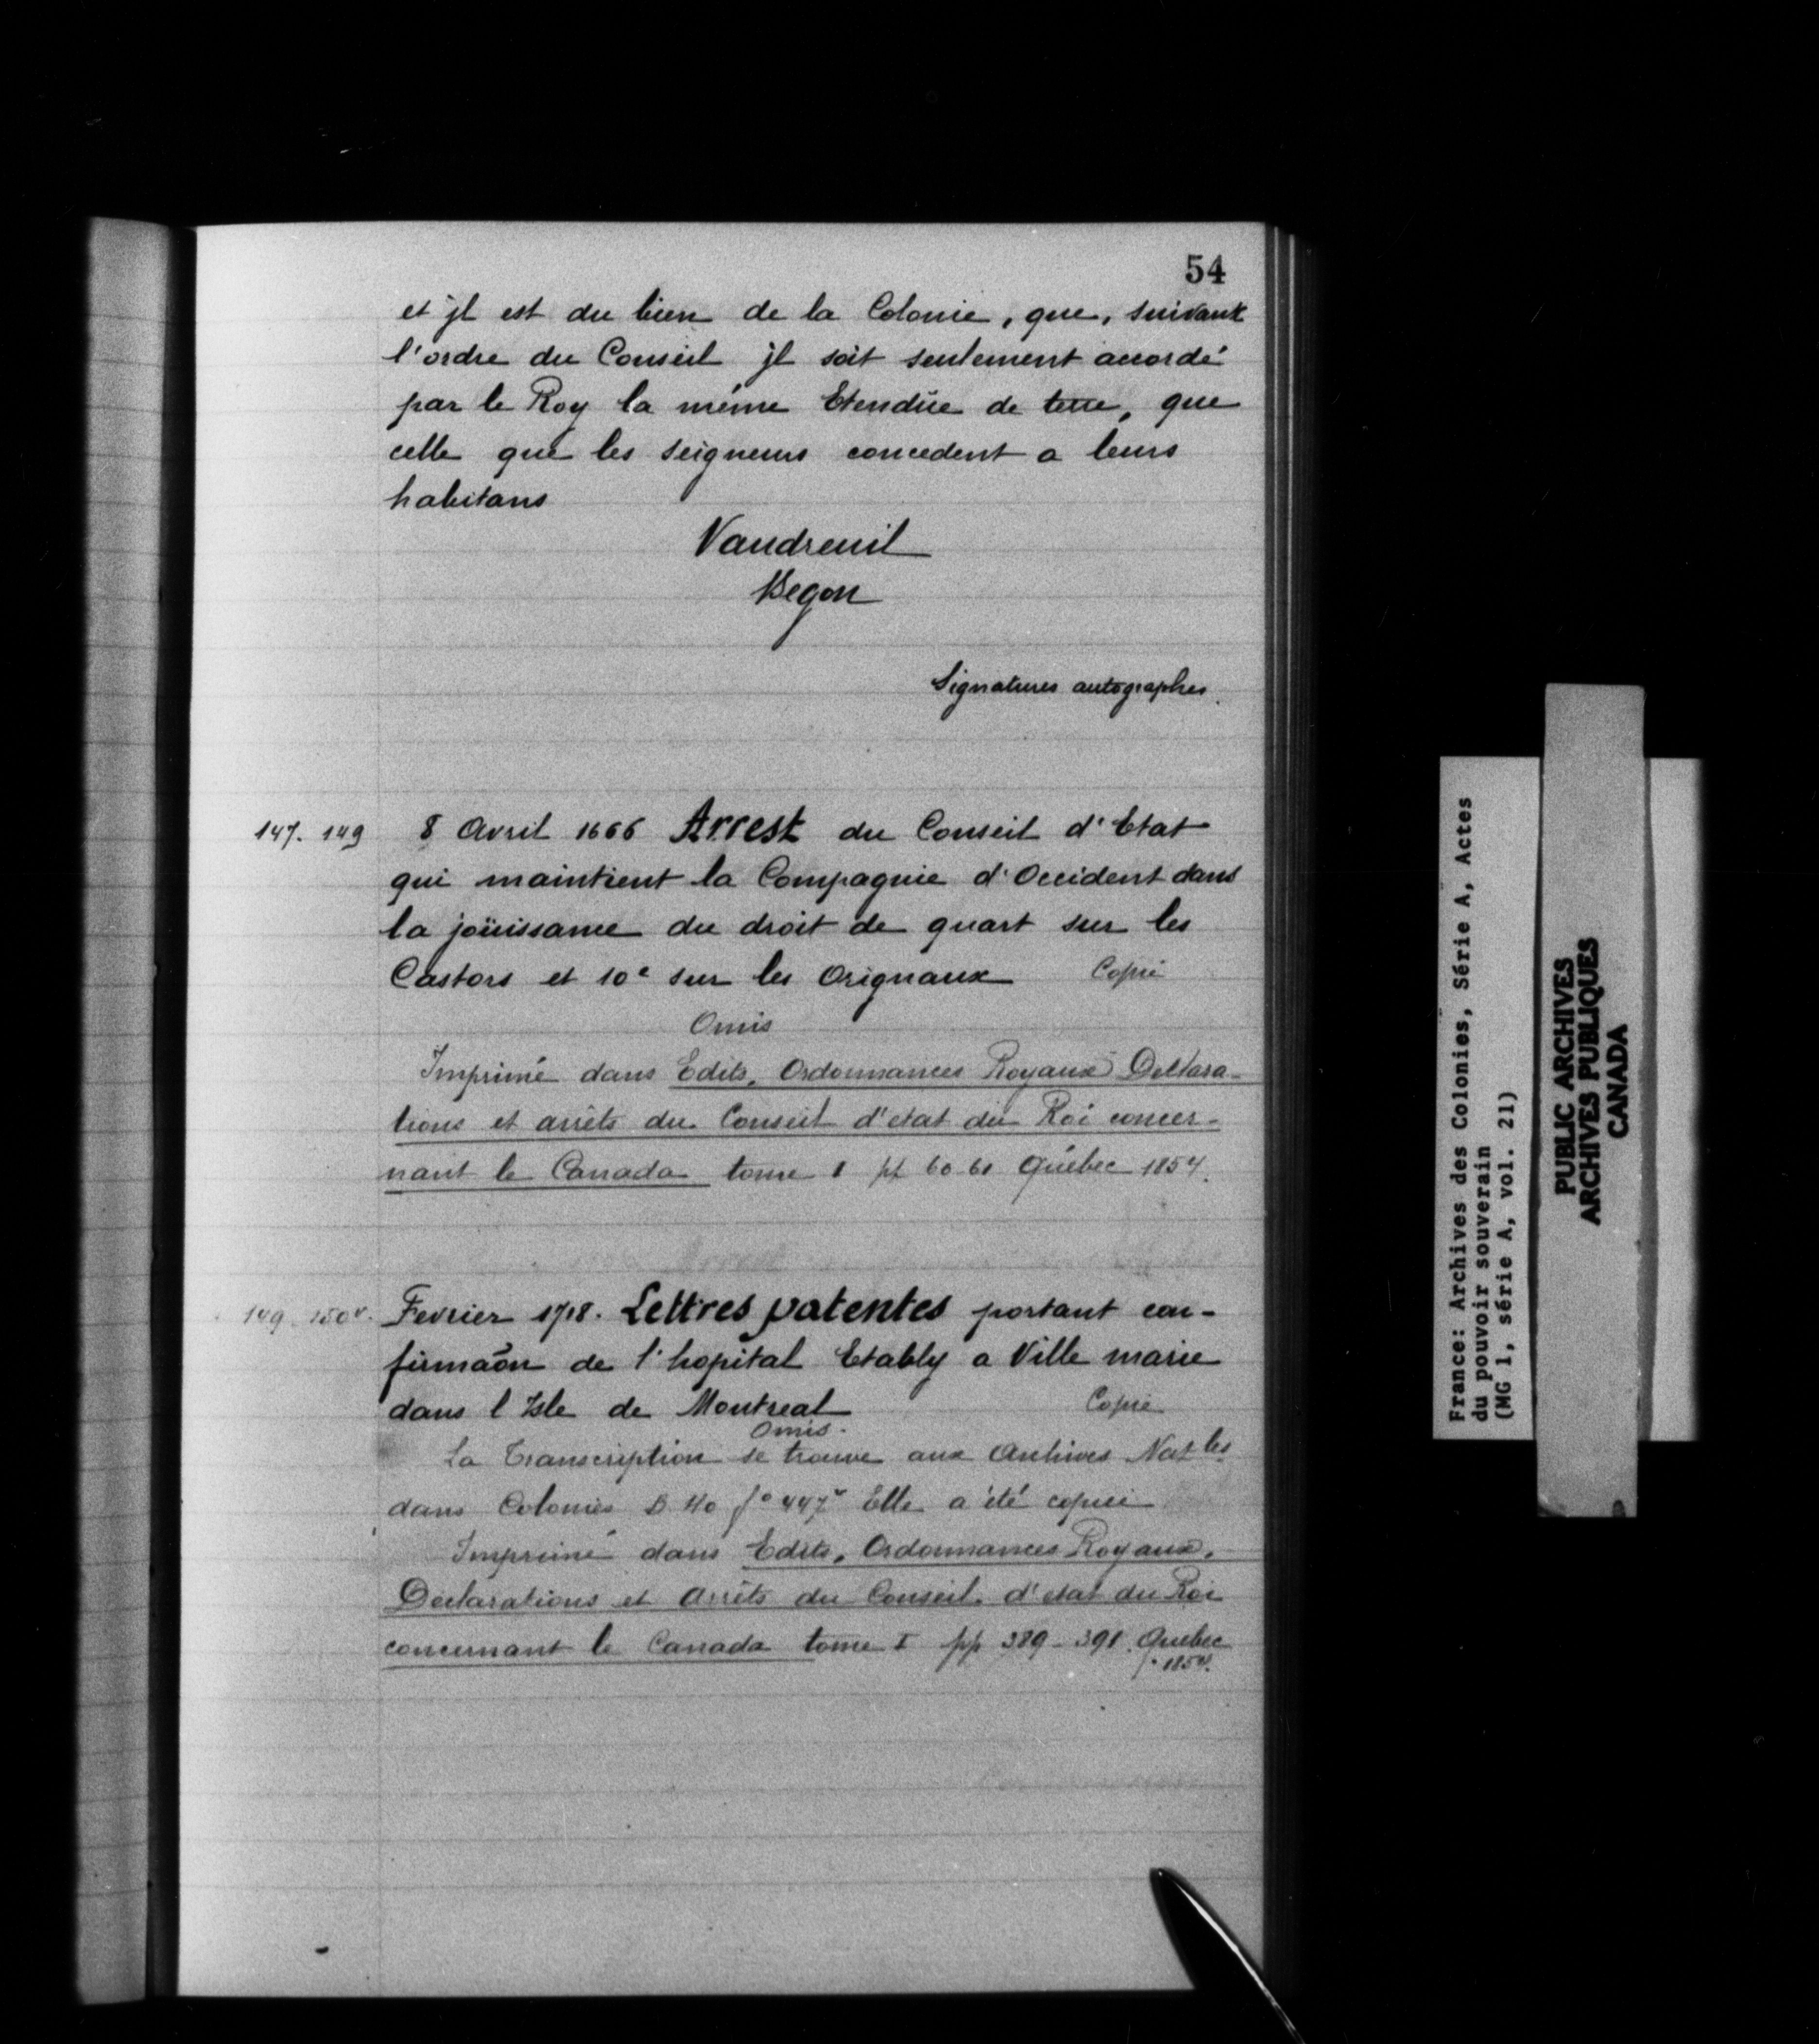 54
et jl est du bien de la Colonie, que, suivant
l'ordre du Conseil jl soit seulement accordé
par le Roy la méme Etendüe de terre, que
celle que les seigneurs concedent a leurs
habitans
Vaudreuil
Begon
Signatures autographes.
147. 149 8 Avril 1666 Arrest du Conseil d'Etat
qui maintient la Compagnie d'Occident dans
la joüissance du droit de quart sur les
Castors et 10e sur les Orignaux Copié
Omis
Imprimé dans Edits, Ordonnances Royaux Déclara-
tions et arrêts du Conseil d'etat du Roi concer-
nant le Canada tome I pp 60-61 Québec 1854.
149. 150v. Fevrier 1718. Lettres patentes portant con-
firmaõn de l'hopital Etably a Ville marie
dans l Isle de Montreal Copié
Omis.
La Transcription se trouve aux Archives Natles
dans Colonies B 40 fo 447v Elle a été copiée
Imprimé dans Edits, Ordonnances Royaux,
Declarations et Arrêts du Conseil d'etat du Roi
concernant le Canada tome I pp 389-391. Quebec
1854.
France: Archives des Colonies, Série A, Actes
du pouvoir souverain
(MG 1, série A, vol. 21)
PUBLIC ARCHIVES
ARCHIVES PUBLIQUES
CANADA